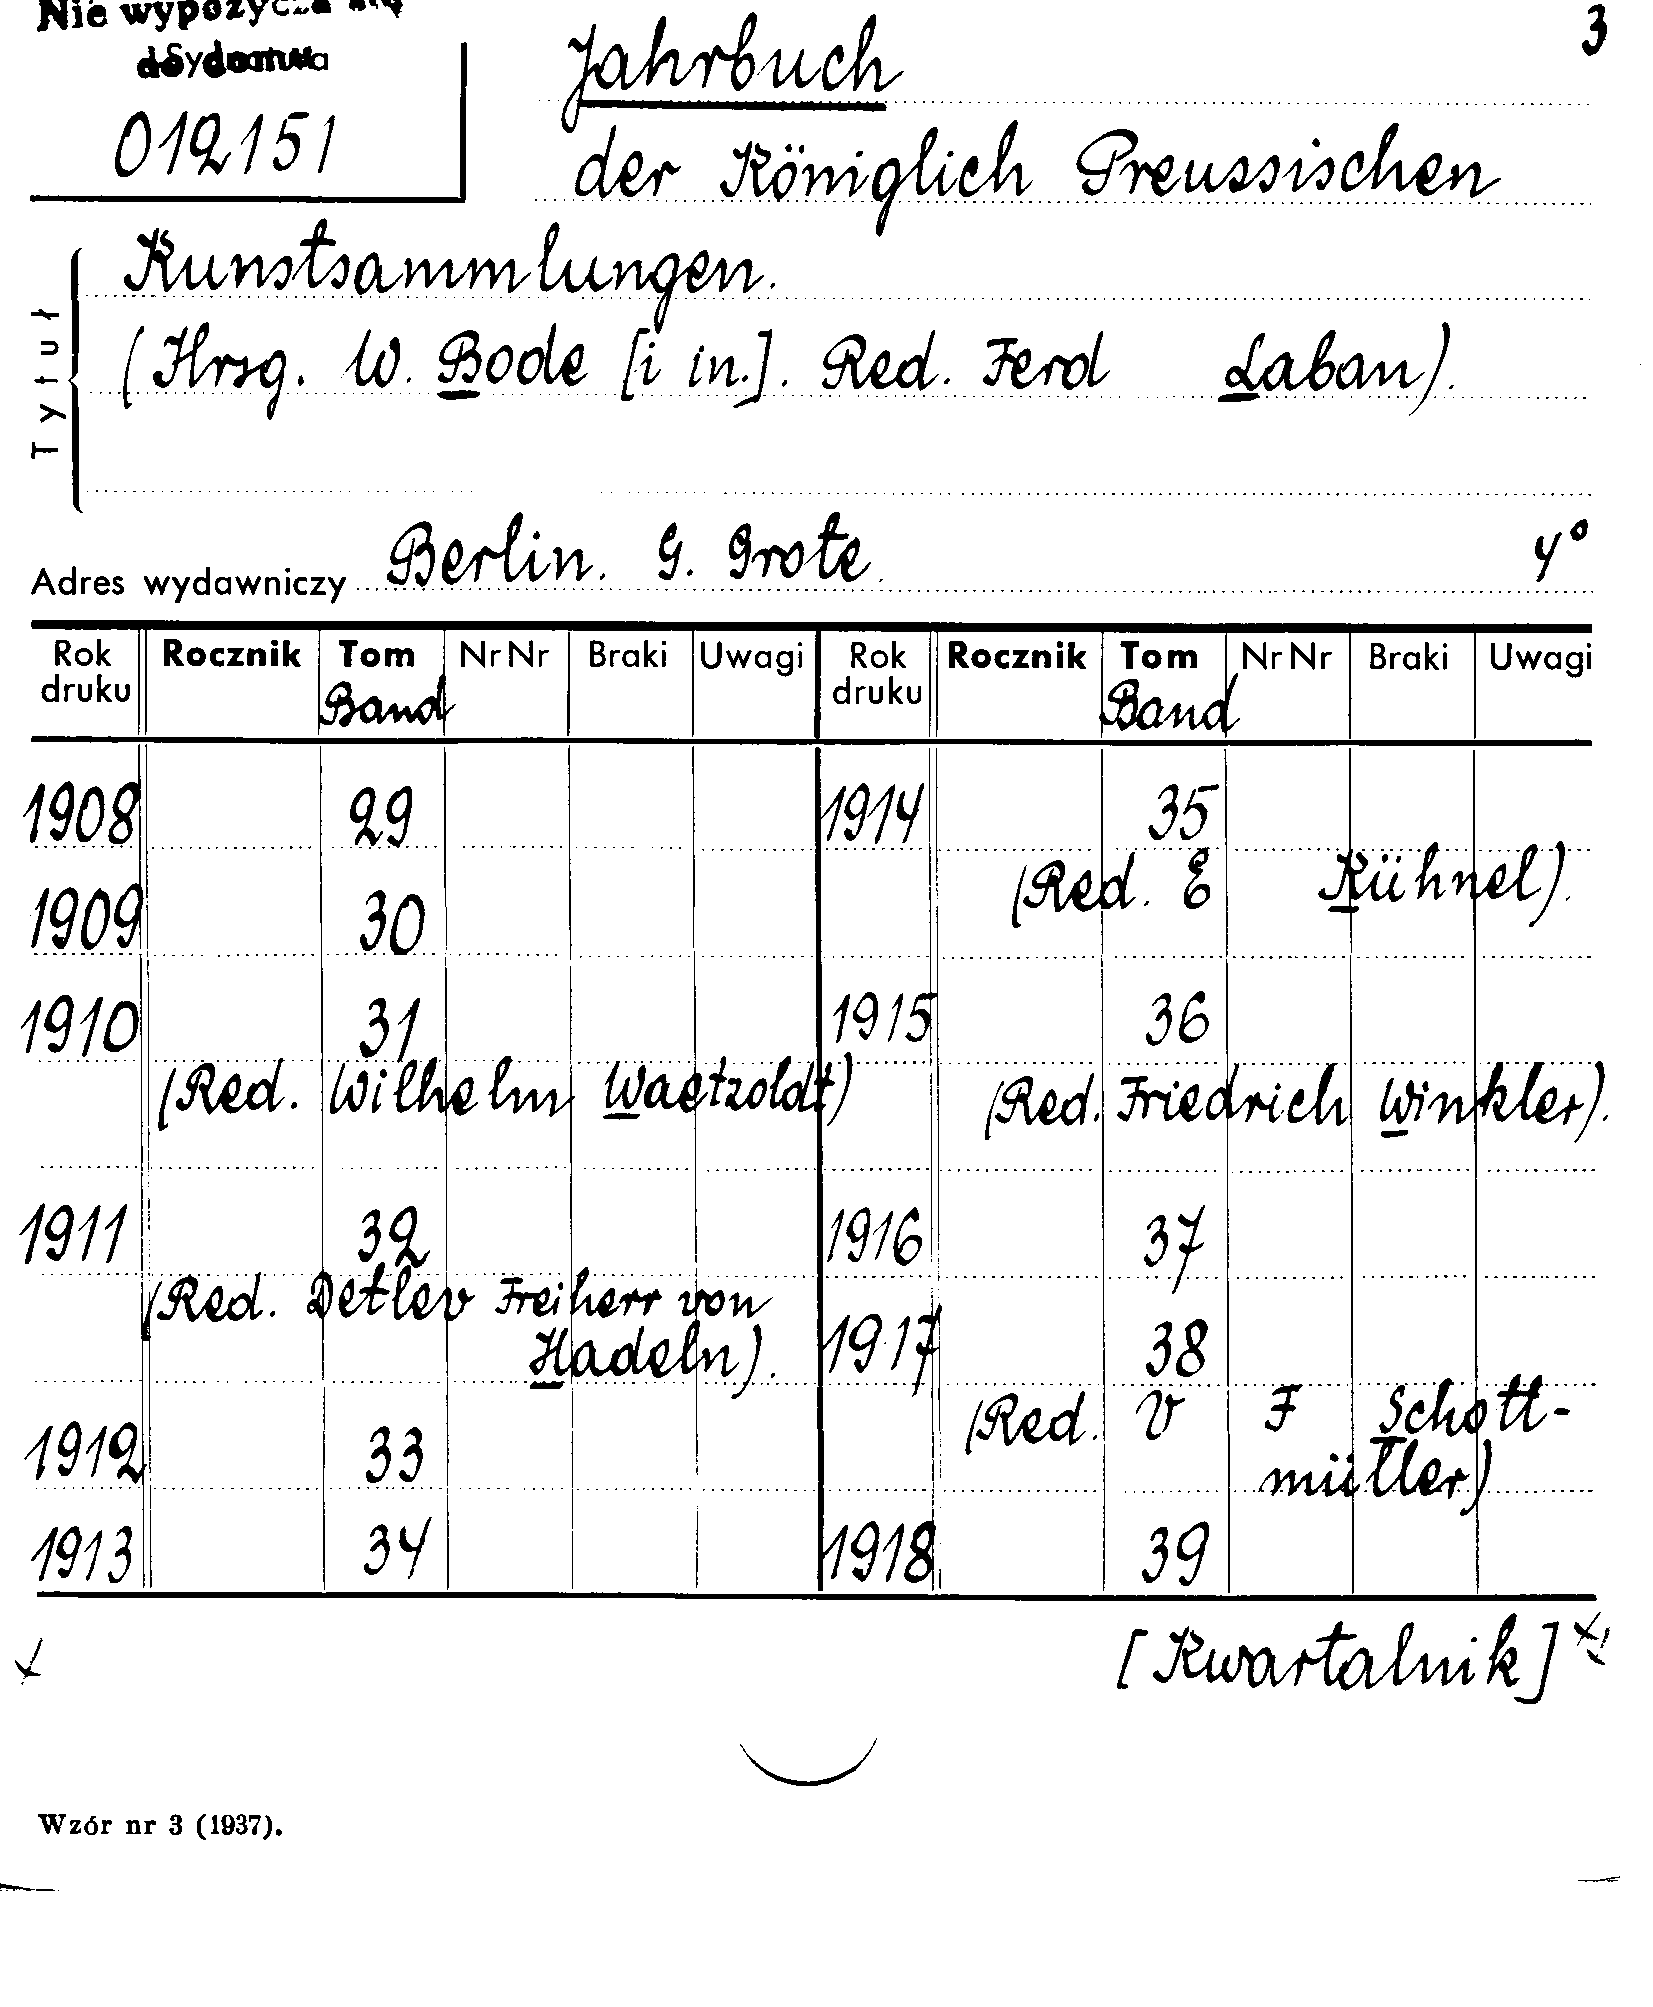 Nie wypożycza się
do domu
3
012151
Jahrbuch
der Königlich Preussischen
Kunstsammlungen.
(Hrsg. W. Bode [i in.]. Red. Ferd Laban).
Tytuł
Adres wydawniczy Berlin. G. Grote. 4°
Rok druku Rocznik Tom Nr Nr Braki Uwagi Rok druku Rocznik Tom Nr Nr Braki Uwagi
Band Band
1908 29 1914 35
(Red. E Kühnel).
1909 30
1910 31 1915 36
(Red. Wilhelm Waetzoldt) (Red. Friedrich Winkler).
1911 32 1916 37
(Red. Detlev Freiherr von
Hadeln). 1917 38
(Red. V F Schott-
1912 33 müller)
1913 34 1918 39
[Kwartalnik]
Wzór nr 3 (1937).